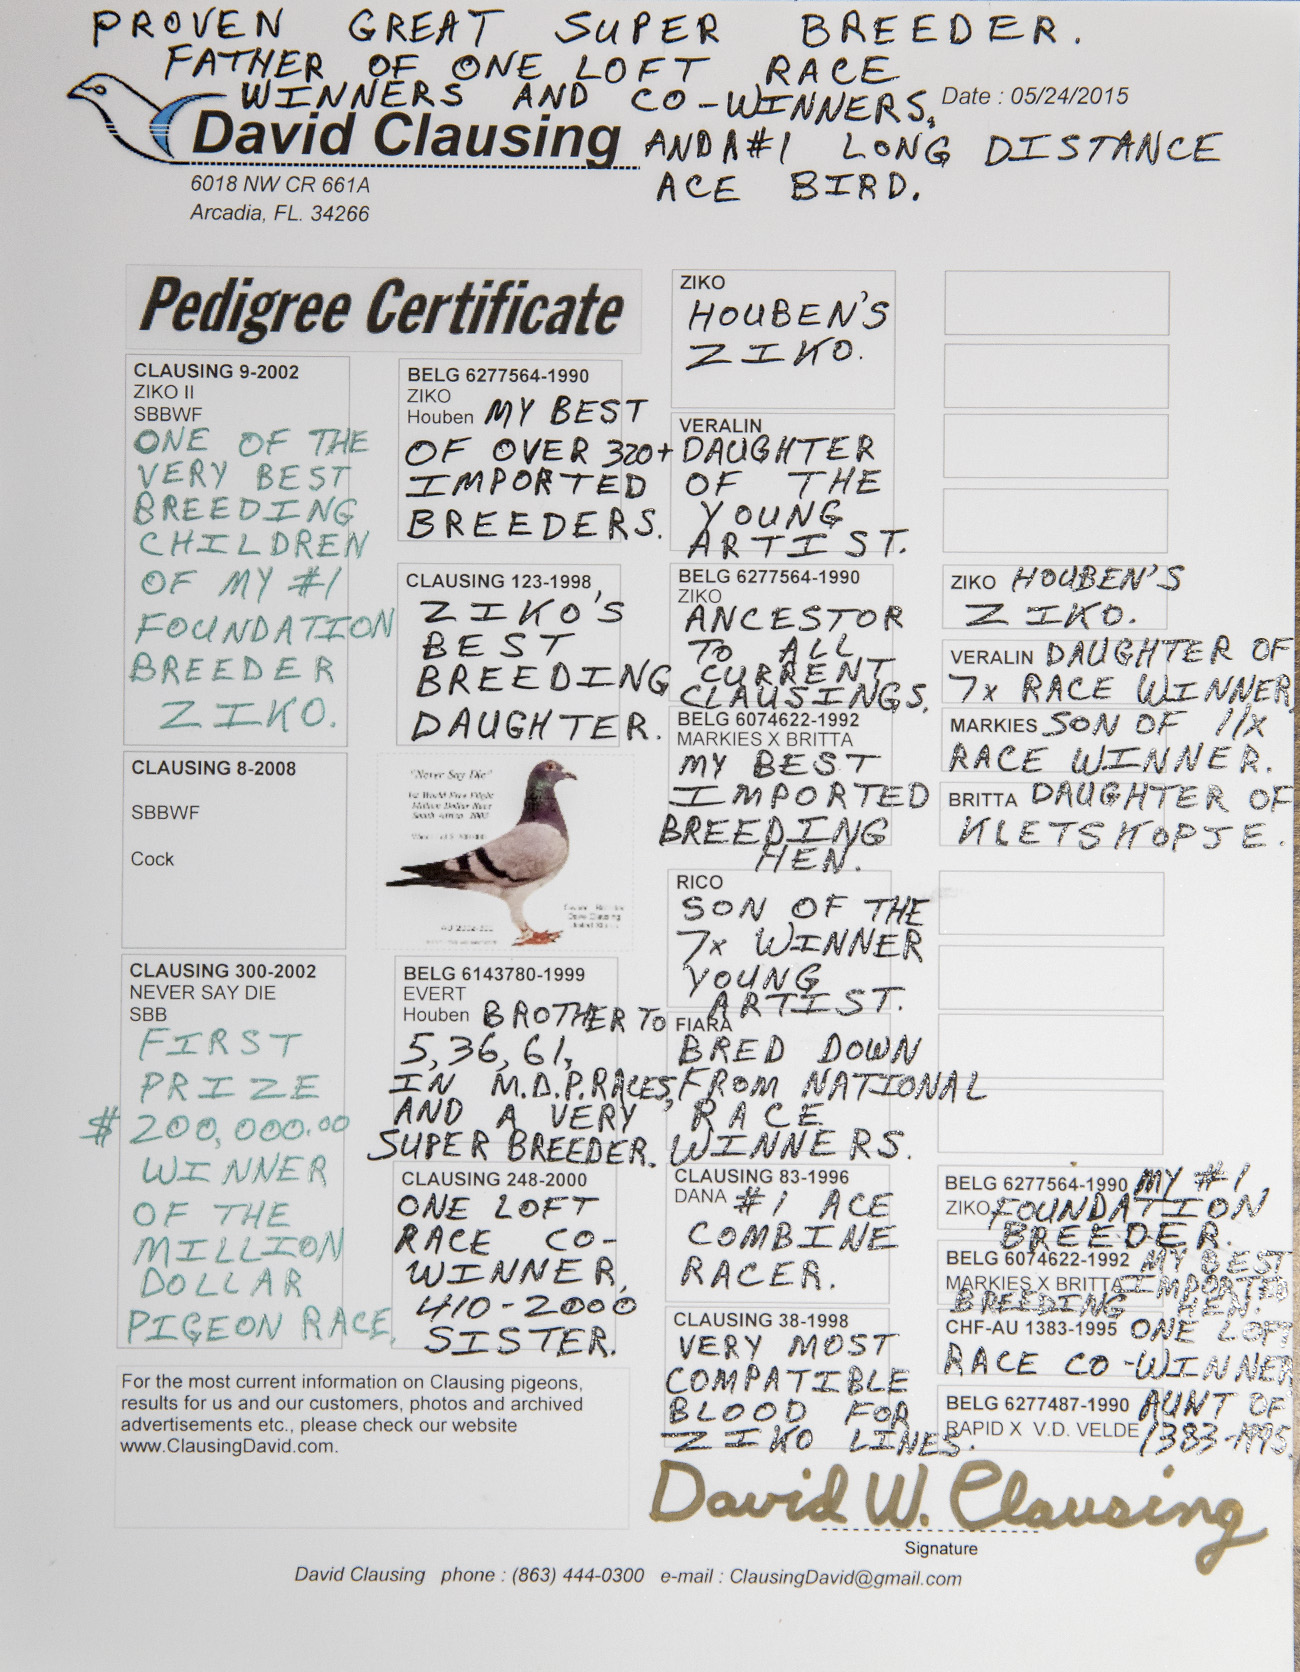 PROVEN GREAT SUPER BREEDER.
FATHER OF ONE LOFT RACE
WINNERS AND CO-WINNERS,
AND A #1 LONG DISTANCE
ACE BIRD.
Date : 05/24/2015
David Clausing
6018 NW CR 661A
Arcadia, FL. 34266
Pedigree Certificate
CLAUSING 9-2002
ZIKO II
SBBWF
ONE OF THE
VERY BEST
BREEDING
CHILDREN
OF MY #1
FOUNDATION
BREEDER
ZIKO.
CLAUSING 8-2008
SBBWF
Cock
CLAUSING 300-2002
NEVER SAY DIE
SBB
FIRST
PRIZE
$ 200,000.00
WINNER
OF THE
MILLION
DOLLAR
PIGEON RACE.
For the most current information on Clausing pigeons,
results for us and our customers, photos and archived
advertisements etc., please check our website
www.ClausingDavid.com.
BELG 6277564-1990
ZIKO
Houben MY BEST
OF OVER 320+
IMPORTED
BREEDERS.
CLAUSING 123-1998
ZIKO'S
BEST
BREEDING
DAUGHTER.
"Never Say Die"
1st World Free Flight
Million Dollar Race
South Africa 2003
BELG 6143780-1999
EVERT
Houben BROTHER TO
5, 36, 61,
IN M.D.P.RACES,
AND A VERY
SUPER BREEDER.
CLAUSING 248-2000
ONE LOFT
RACE CO-
WINNER,
410-2000
SISTER.
ZIKO
HOUBEN'S
ZIKO.
VERALIN
DAUGHTER
OF THE
YOUNG
ARTIST.
BELG 6277564-1990
ZIKO
ANCESTOR
TO ALL
CURRENT
CLAUSINGS.
BELG 6074622-1992
MARKIES X BRITTA
MY BEST
IMPORTED
BREEDING
HEN.
RICO
SON OF THE
7x WINNER
YOUNG
ARTIST.
FIARA
BRED DOWN
FROM NATIONAL
RACE
WINNERS.
CLAUSING 83-1996
DANA #1 ACE
COMBINE
RACER.
CLAUSING 38-1998
VERY MOST
COMPATIBLE
BLOOD FOR
ZIKO LINES.
ZIKO HOUBEN'S
ZIKO.
VERALIN DAUGHTER OF
7x RACE WINNER
MARKIES SON OF 11x
RACE WINNER.
BRITTA DAUGHTER OF
KLETSKOPJE.
BELG 6277564-1990 MY #1
ZIKO FOUNDATION
BREEDER.
BELG 6074622-1992 MY BEST
MARKIES X BRITTA IMPORTED
BREEDING HEN.
CHF-AU 1383-1995 ONE LOFT
RACE CO-WINNER
BELG 6277487-1990 AUNT OF
RAPID X V.D. VELDE 1383-1995.
David W. Clausing
Signature
David Clausing phone : (863) 444-0300 e-mail : ClausingDavid@gmail.com